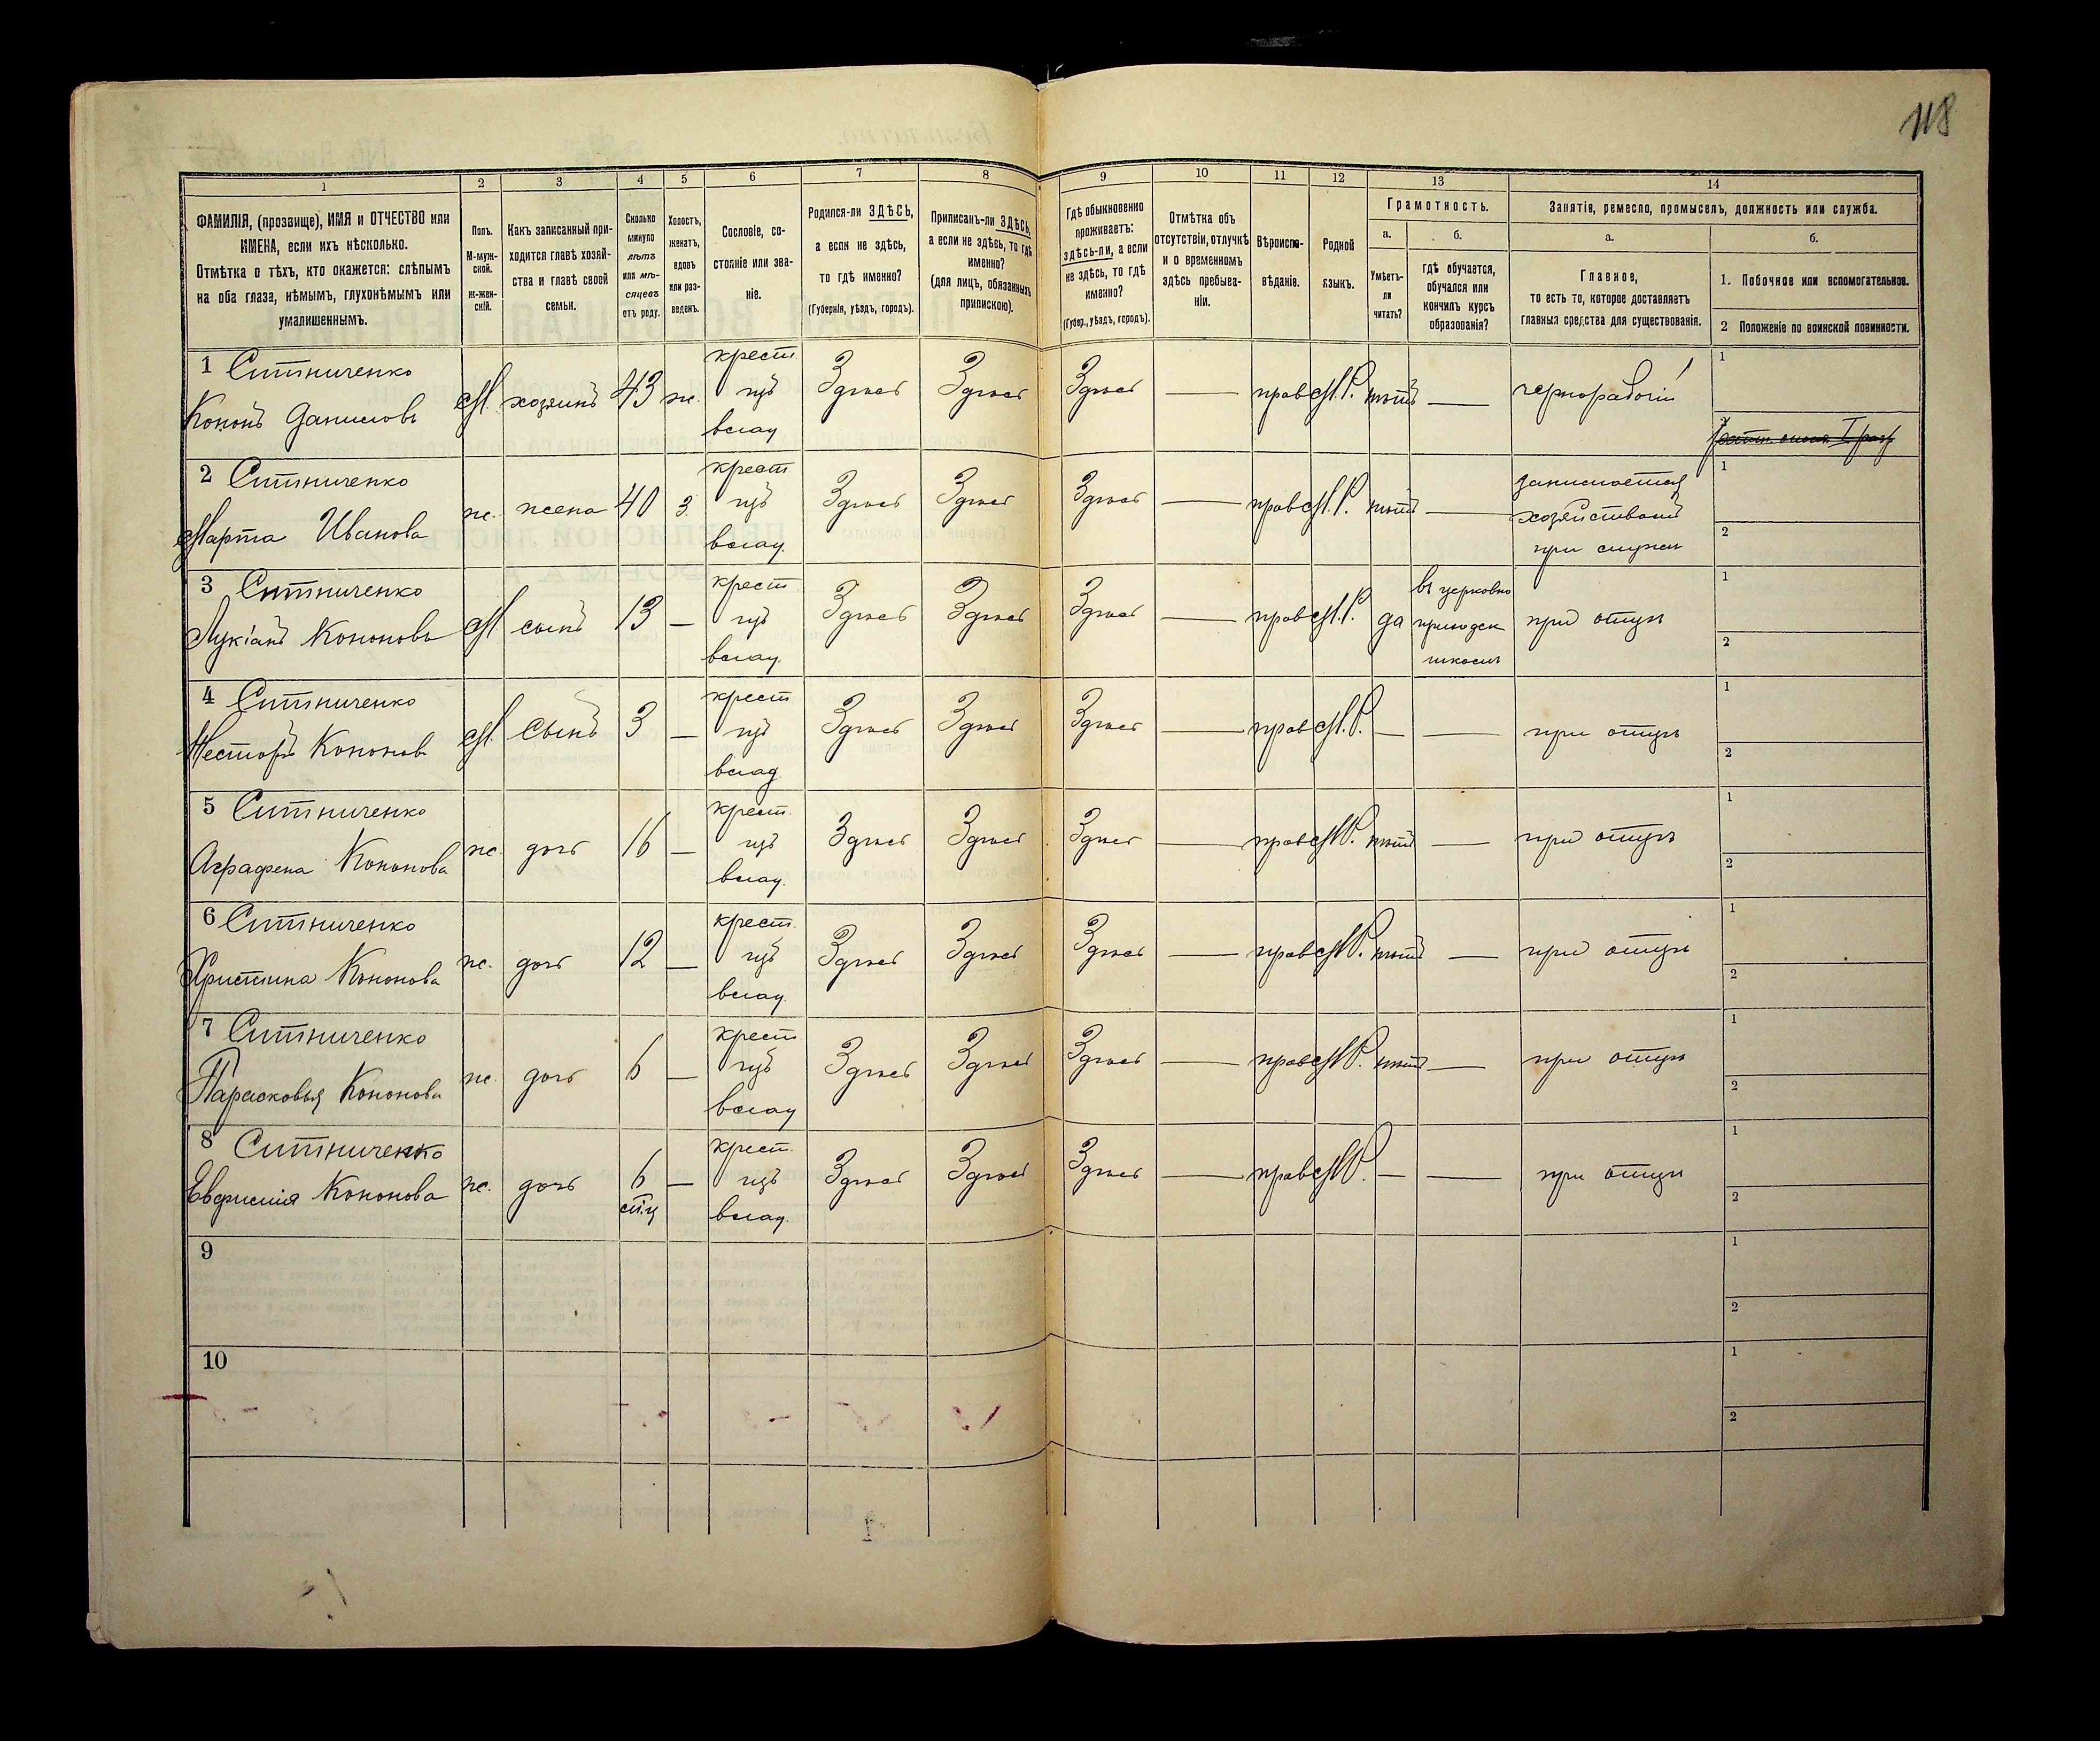 118
1 2 3 4 5 6 7 8 9 10 11 12 13 14
ФАМИЛІЯ, (прозвище), ИМЯ и ОТЧЕСТВО или
ИМЕНА, если ихъ нѣсколько.
Отмѣтка о тѣхъ, кто окажется: слѣпымъ
на оба глаза, нѣмымъ, глухонѣмымъ или
умалишеннымъ.
Полъ.
М-муж-
ской.
ж-жен-
скій.
Какъ записанный при-
ходится главѣ хозяй-
ства и главѣ своей
семьи.
Сколько
минуло
лѣтъ
или мѣ-
сяцевъ
отъ роду.
Холостъ,
женатъ,
вдовъ
или раз-
веденъ.
Сословіе, со-
стояніе или зва-
ніе.
Родился-ли ЗДѢСЬ,
а если не здѣсь,
то гдѣ именно?
(Губернія, уѣздъ, городъ).
Приписанъ-ли ЗДѢСЬ,
а если не здѣсь, то гдѣ
именно?
(для лицъ, обязанныхъ
припискою).
Гдѣ обыкновенно
проживаетъ:
здѣсь-ли, а если
не здѣсь, то гдѣ
именно?
(Губер., уѣздъ, городъ).
Отмѣтка объ
отсутствіи, отлучкѣ
и о временномъ
здѣсь пребыва-
ніи.
Вѣроиспо-
вѣданіе.
Родной
языкъ.
Грамотность.
а.
Умѣетъ-
ли
читать?
б.
гдѣ обучается,
обучался или
кончилъ курсъ
образованія?
Занятія, ремесло, промыселъ, должность или служба.
а.
Главное,
то есть то, которое доставляетъ
главныя средства для существованія.
б.
1. Побочное или вспомогательное.
2 Положеніе по воинской повинности.
1 Ситниченко крест. 1
Кононъ Даниловъ М. хозяинъ 43 ж. изъ Здѣсь Здѣсь Здѣсь — прав М.Р. нѣтъ — чернорабочій
влад 2
2 Ситниченко крест. занимается 1
Марта Иванова ж. жена 40 з. изъ Здѣсь Здѣсь Здѣсь — прав М.Р. нѣтъ — хозяйствомъ
влад. при мужи 2
3 Ситниченко крест въ церковно 1
Лукіанъ Кононовъ М сынъ 13 — изъ Здѣсь Здѣсь Здѣсь — прав М.Р. да приходск при отцѣ
влад. школѣ 2
4 Ситниченко крест 1
Несторъ Кононов М. сынъ 3 — изъ Здѣсь Здѣсь Здѣсь — прав М.Р. — — при отцѣ
влад 2
5 Ситниченко крест. 1
Аграфена Кононова ж. дочь 16 — изъ Здѣсь Здѣсь Здѣсь — прав М.Р. нѣтъ — при отцѣ
влад. 2
6 Ситниченко крест. 1
Христина Кононова ж. дочь 12 — изъ Здѣсь Здѣсь Здѣсь — прав М.Р. нѣтъ — при отцѣ
влад. 2
7 Ситниченко крест 1
Парасковья Кононова ж. дочь 6 — изъ Здѣсь Здѣсь Здѣсь — прав М.Р. нѣтъ — при отцѣ
влад 2
8 Ситниченко крест. 1
Евфимія Кононова ж. дочь 6 — изъ Здѣсь Здѣсь Здѣсь — прав М.Р. — — при отцѣ
влад. 2
9 1
2
10 1
2